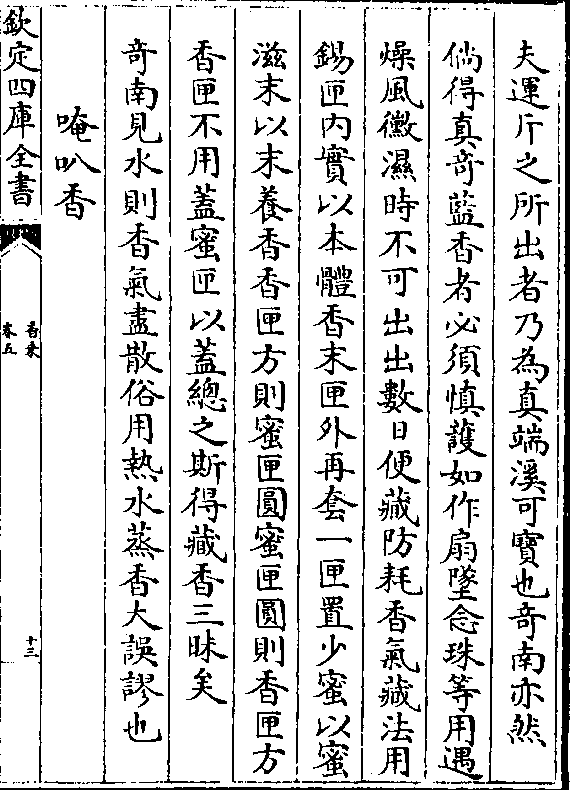 夫運斤之所出者乃為真端溪可寶也竒南亦然
倘得真竒藍香者必須慎䕶如作扇墜念珠等用遇
燥風黴濕時不可出出數日便藏防耗香氣藏法用
錫匣内實以本體香末匣外再套一匣置少蜜以蜜
滋末以末養香香匣方則蜜匣圓蜜匣圓則香匣方
香匣不用蓋蜜匣以蓋總之斯得藏香三昧矣
竒南見水則香氣盡散俗用熱水蒸香大誤謬也
唵叭香
欽定四庫全書
香乘
卷五
十三